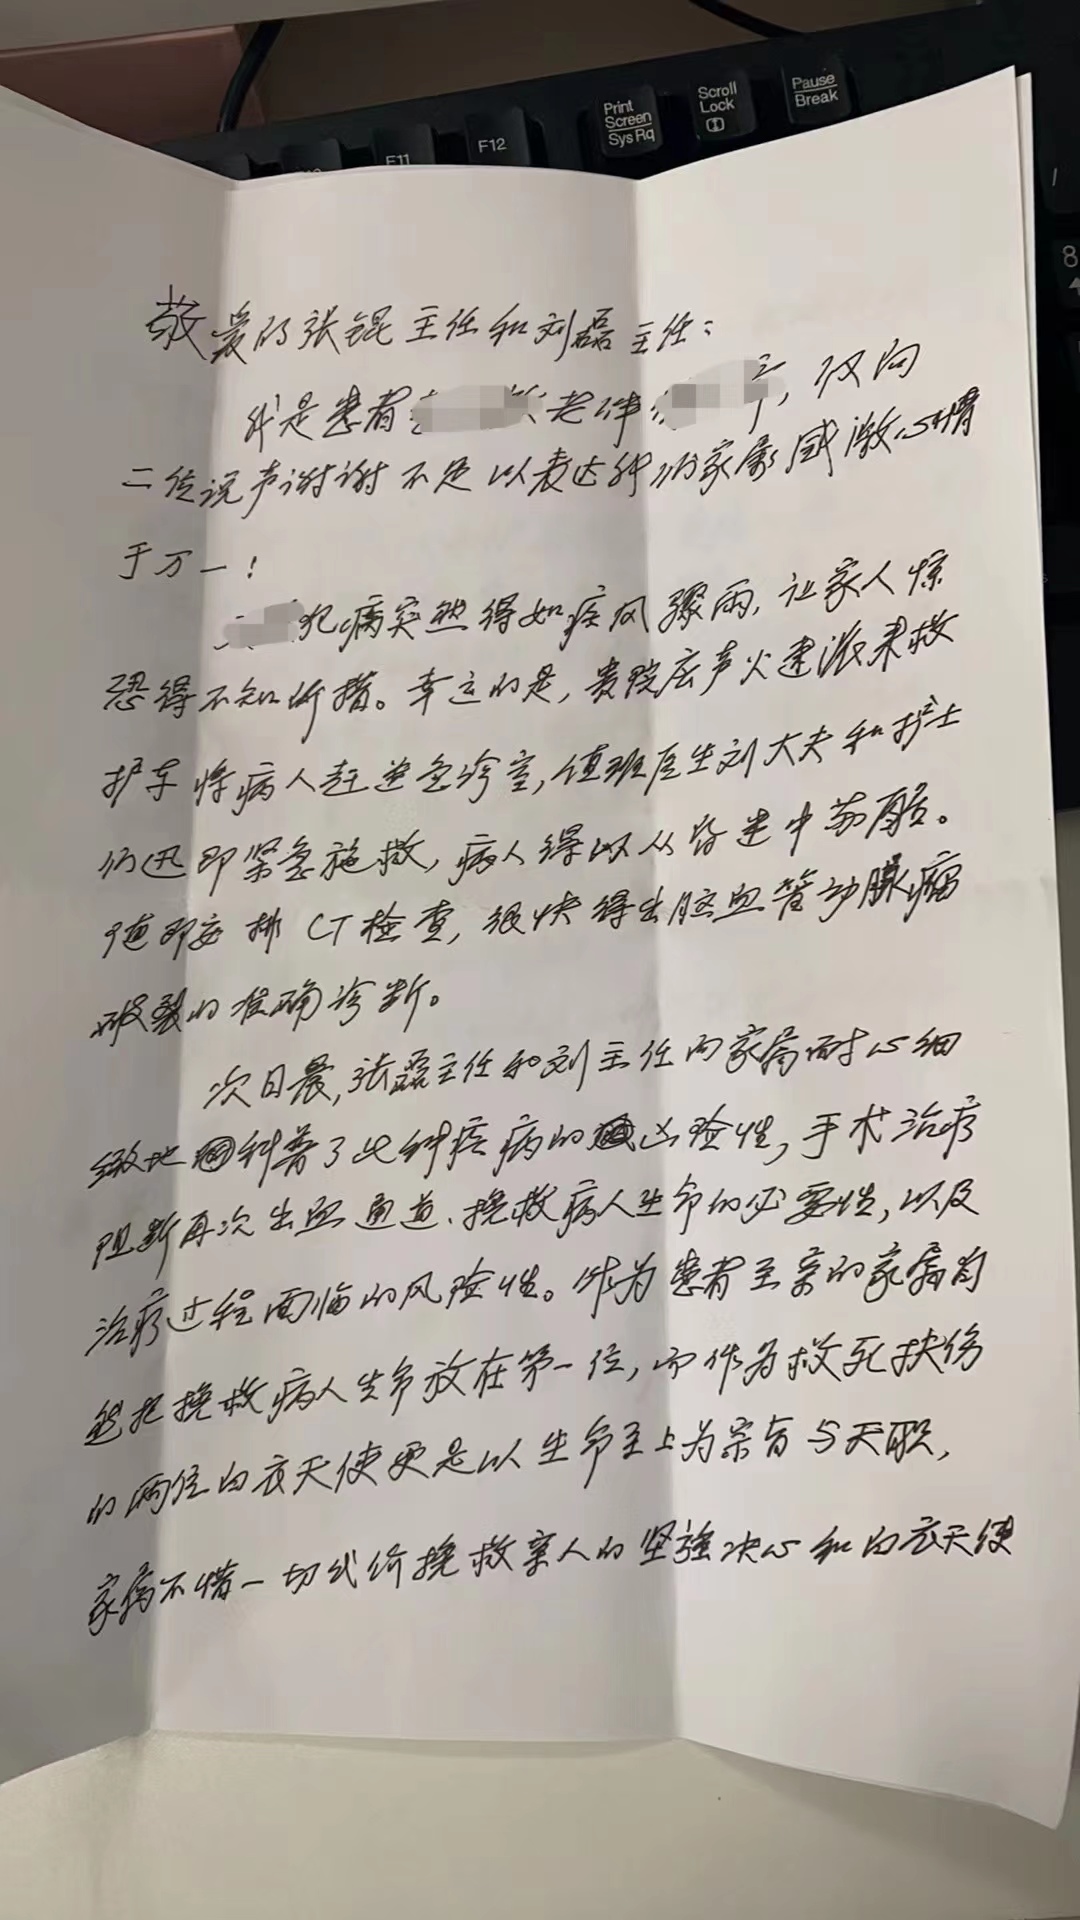 Print
Screen
Sys Rq
Scroll
Lock
Pause
Break
F11
F12
8
敬爱的张锟主任和刘磊主任：
我是患者老伴，仅向
二位说声谢谢不足以表达我们家属感激心情
于万一！
犯病突然得如疾风骤雨，让家人惊
恐得不知所措。幸运的是，贵院应声火速派来救
护车将病人赶送急诊室，值班医生刘大夫和护士
们迅即紧急施救，病人得以从昏迷中苏醒。
随即安排CT检查，很快得出脑血管动脉瘤
破裂的准确诊断。
次日晨，张磊主任和刘主任向家属耐心细
致地科普了此种疾病的凶险性，手术治疗
阻断再次出血通道、挽救病人生命的必要性，以及
治疗过程面临的风险性。作为患者至亲的家属自
然把挽救病人生命放在第一位，而作为救死扶伤
的两位白衣天使更是以生命至上为宗旨与天职，
家属不惜一切代价挽救亲人的坚强决心和白衣天使